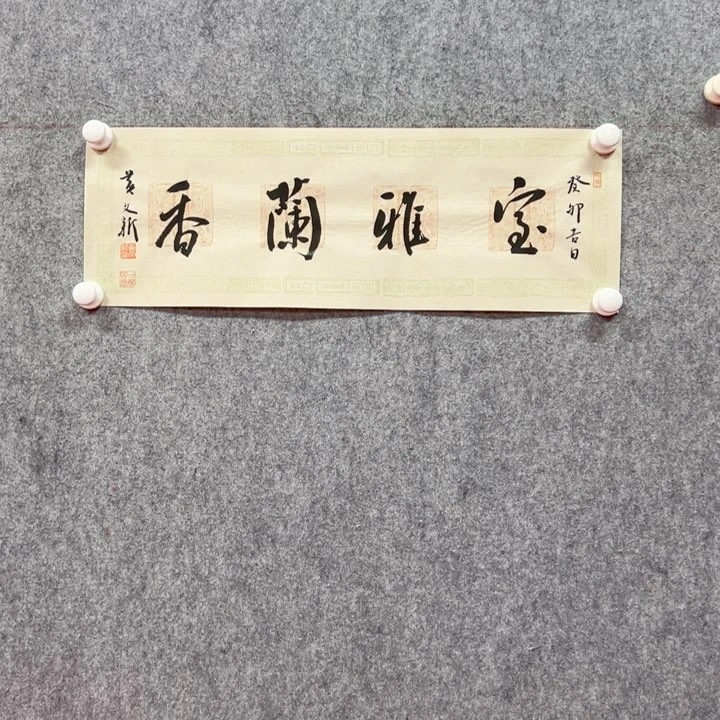 癸卯吉日
室雅蘭香
黄文新